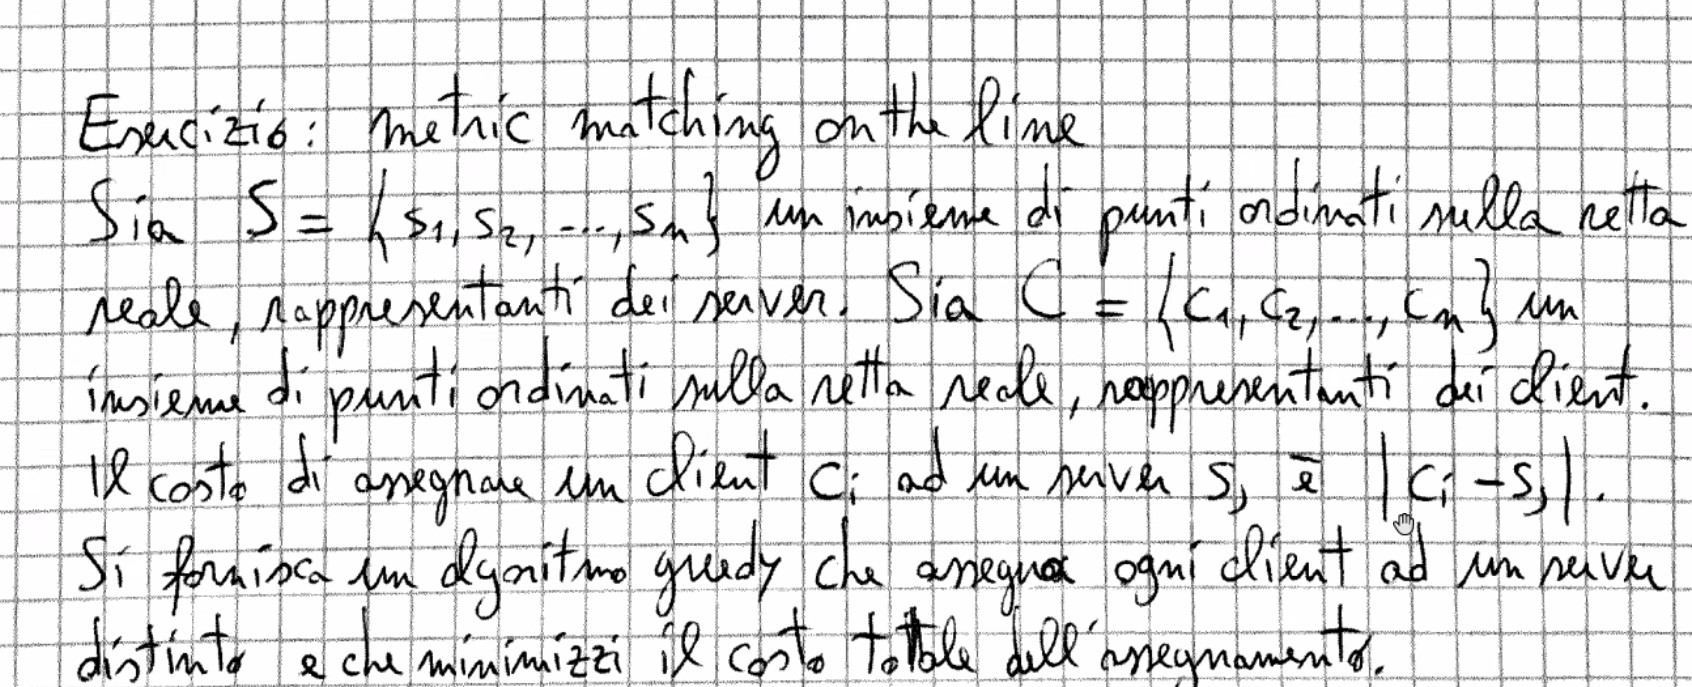 Esercizio: metric matching on the line
Sia S = {s1, s2, ..., sn} un insieme di punti ordinati sulla retta
reale, rappresentanti dei server. Sia C = {c1, c2, ..., cn} un
insieme di punti ordinati sulla retta reale, rappresentanti dei client.
Il costo di assegnare un client ci ad un server sj è |ci - sj|.
Si fornisca un algoritmo greedy che assegna ogni client ad un server
distinto e che minimizzi il costo totale dell'assegnamento.